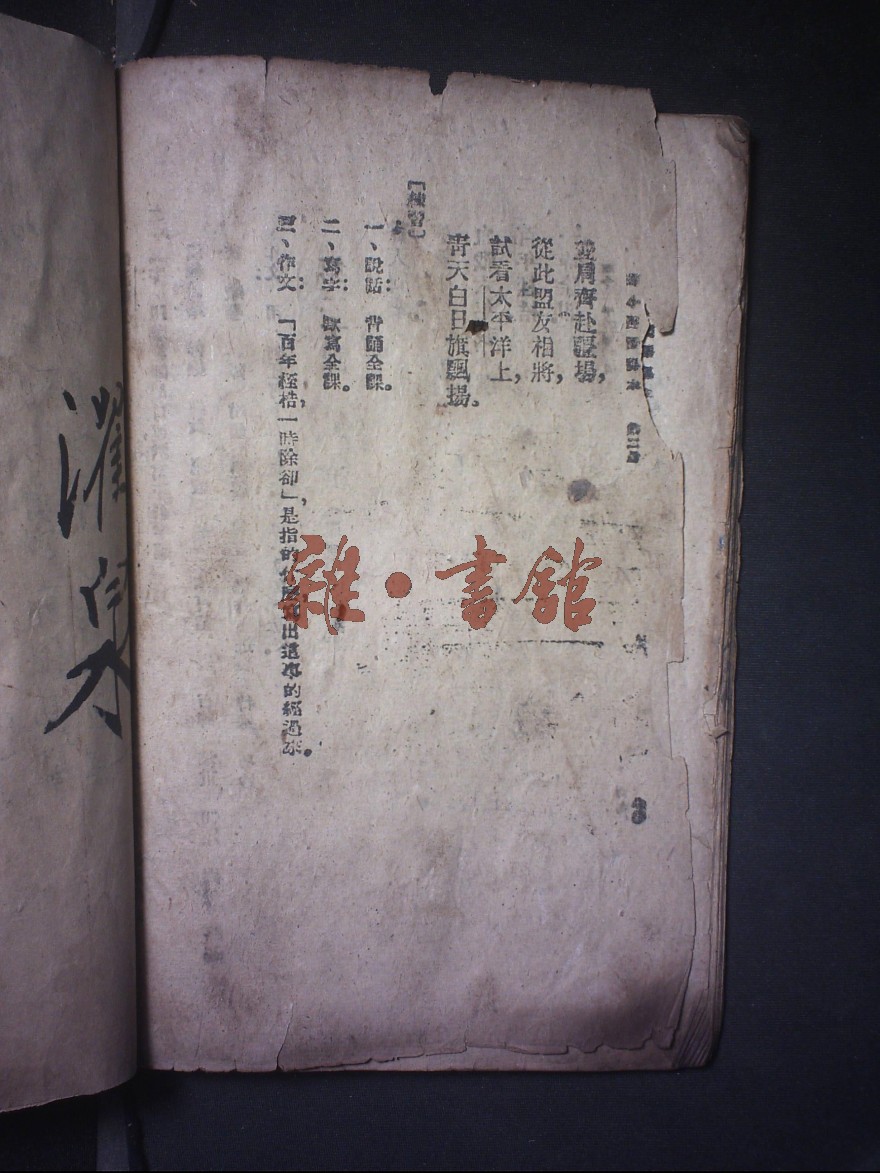 肩齊赴疆場，
從此盟友相將，
試看太平洋上，
靑天白日旗飄揚。
〔練習〕
一、說話：背誦全課。
二、寫字：默寫全課。
三、作文：「百年桎梏，一時除卻」，是指的什 出這事的經過來。
雜·書館
濯泉